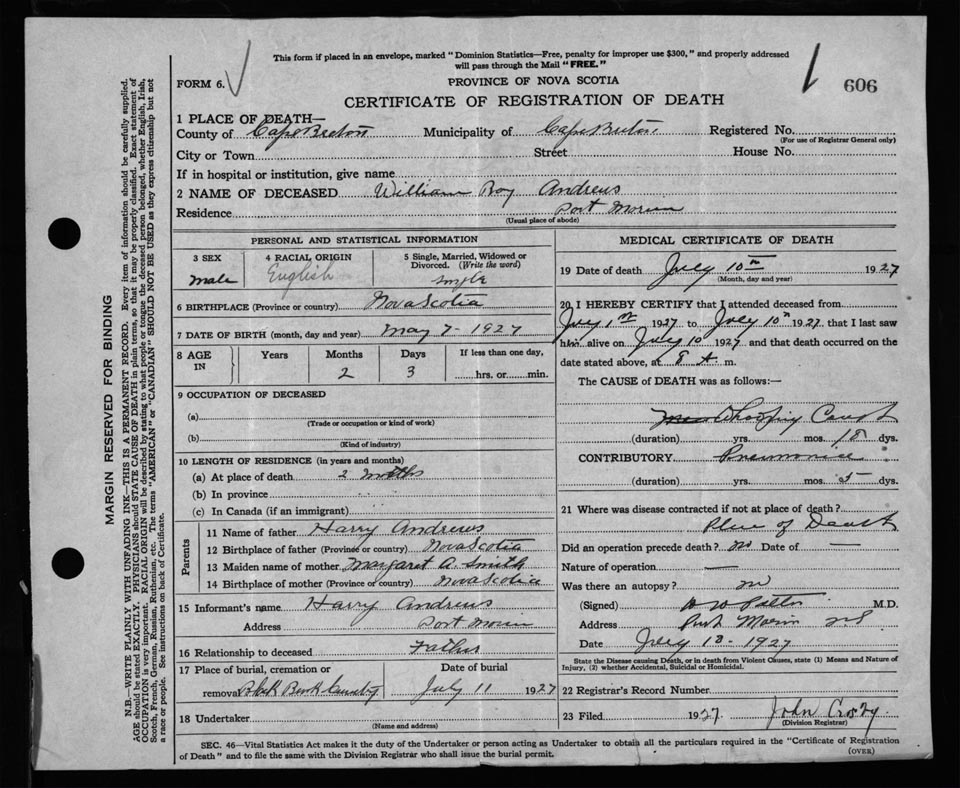 This form if placed in an envelope, marked "Dominion Statistics—Free, penalty for improper use $300," and properly addressed
will pass through the Mail "FREE."
FORM 6.
PROVINCE OF NOVA SCOTIA
606
CERTIFICATE OF REGISTRATION OF DEATH
1 PLACE OF DEATH—
County of Cape Breton Municipality of Cape Breton Registered No.
(For use of Registrar General only)
City or Town Street House No.
If in hospital or institution, give name
2 NAME OF DECEASED William Roy Andrews
Residence Port Morien
(Usual place of abode)
PERSONAL AND STATISTICAL INFORMATION
3 SEX 4 RACIAL ORIGIN 5 Single, Married, Widowed or
Divorced. (Write the word)
male English single
6 BIRTHPLACE (Province or country) Nova Scotia
7 DATE OF BIRTH (month, day and year) May 7 - 1927
8 AGE IN Years Months Days If less than one day,
2 3 hrs. or min.
9 OCCUPATION OF DECEASED
(a)
(Trade or occupation or kind of work)
(b)
(Kind of industry)
10 LENGTH OF RESIDENCE (in years and months)
(a) At place of death 2 months
(b) In province
(c) In Canada (if an immigrant)
Parents
11 Name of father Harry Andrews
12 Birthplace of father (Province or country) Nova Scotia
13 Maiden name of mother Margaret A. Smith
14 Birthplace of mother (Province or country) Nova Scotia
15 Informant's name Harry Andrews
Address Port Morien
16 Relationship to deceased Father
17 Place of burial, cremation or Date of burial
removal July 11 1927
18 Undertaker
(Name and address)
MEDICAL CERTIFICATE OF DEATH
19 Date of death July 10th 1927
(Month, day and year)
20 I HEREBY CERTIFY that I attended deceased from
July 1st 1927 to July 10th 1927 that I last saw
him alive on July 10 1927 and that death occurred on the
date stated above, at 8 A. m.
The CAUSE of DEATH was as follows:—
Whooping Cough
(duration) yrs. mos. 18 dys.
CONTRIBUTORY Pneumonia
(duration) yrs. mos. 5 dys.
21 Where was disease contracted if not at place of death?
Place of Death
Did an operation precede death? no Date of —
Nature of operation —
Was there an autopsy? no
(Signed) M.D.
Address Port Morien NS
Date July 1927
State the Disease causing Death, or in death from Violent Causes, state (1) Means and Nature of
Injury, (2) whether Accidental, Suicidal or Homicidal.
22 Registrar's Record Number
23 Filed 1927 John Crosby
(Division Registrar)
SEC. 46—Vital Statistics Act makes it the duty of the Undertaker or person acting as Undertaker to obtain all the particulars required in the "Certificate of Registration
of Death" and to file the same with the Division Registrar who shall issue the burial permit.
(OVER)
MARGIN RESERVED FOR BINDING
N.B.—WRITE PLAINLY WITH UNFADING INK—THIS IS A PERMANENT RECORD. Every item of information should be carefully supplied.
AGE should be stated EXACTLY. PHYSICIANS should STATE CAUSE OF DEATH in plain terms, so that it may be properly classified. Exact statement of
OCCUPATION is very important. RACIAL ORIGIN will be described by stating to what people or tongue the deceased person belonged, whether English, Irish,
Scotch, French, German, Russian, Ruthenian, etc. The terms "AMERICAN" or "CANADIAN" SHOULD NOT BE USED as they express citizenship but not
a race or people. See instructions on back of Certificate.